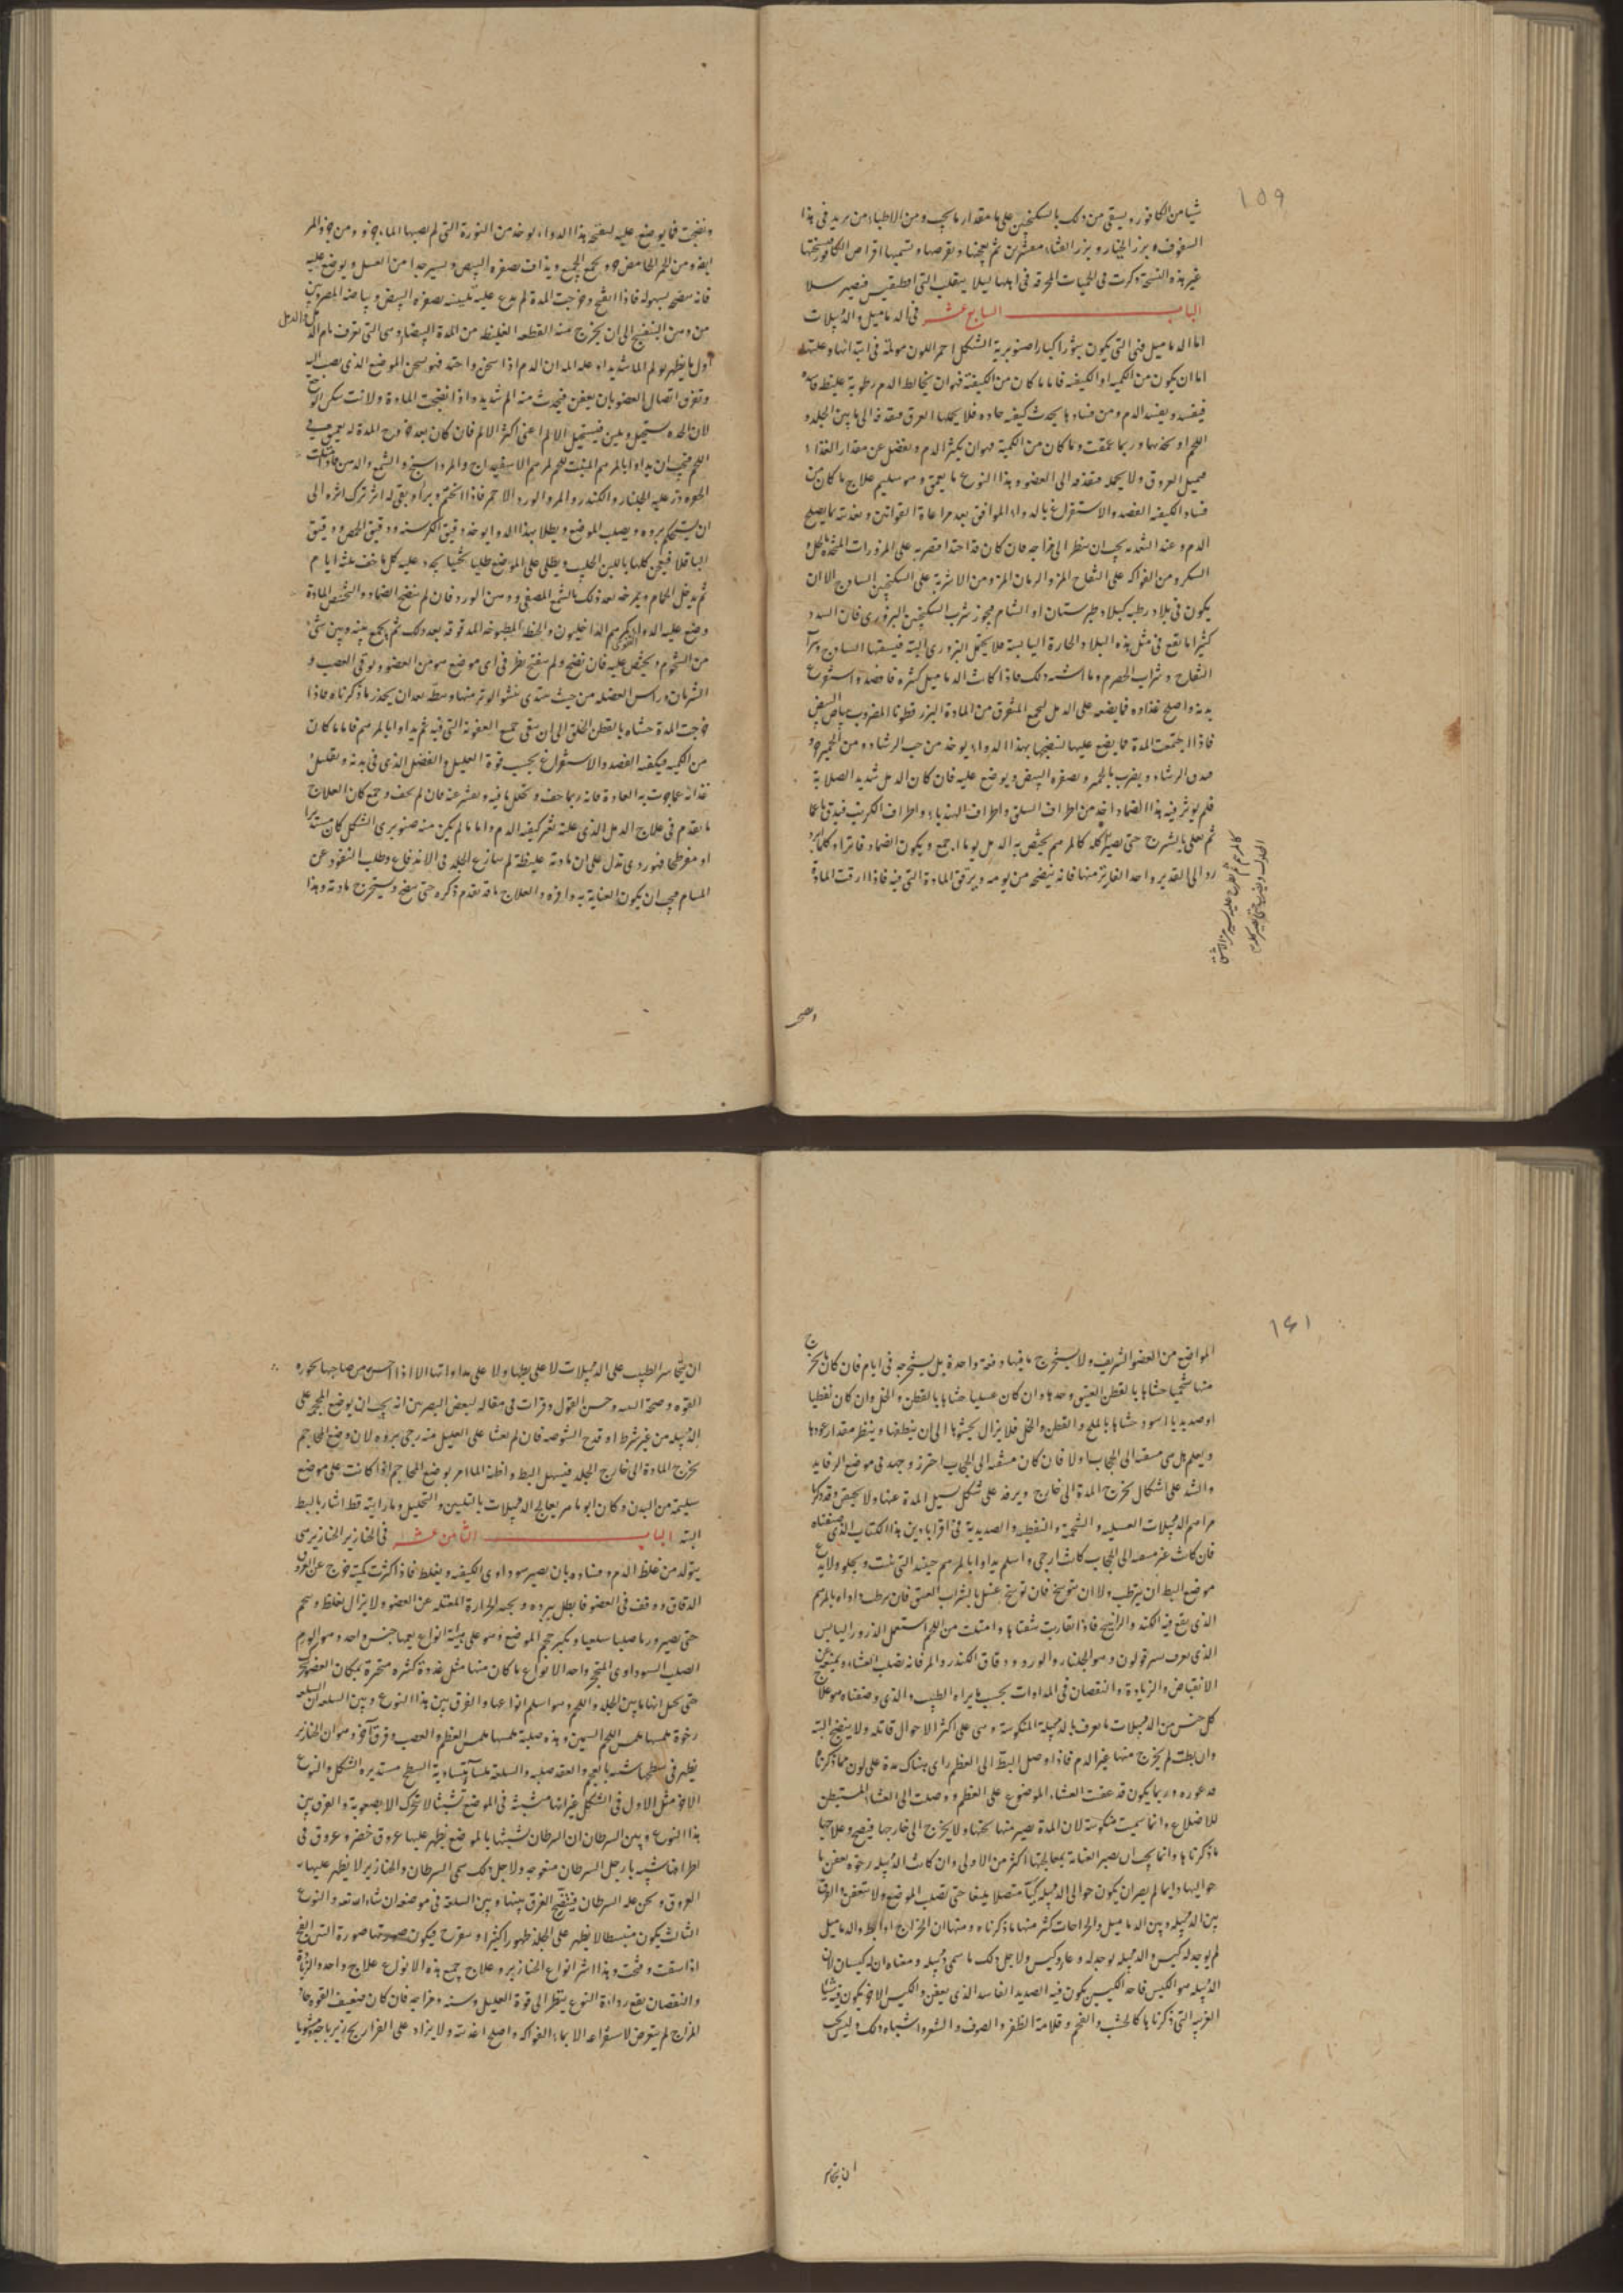 ١٥٩
شيا من الكافور ويسقى من ذلك بالسكنجبين على ما مقدار ما يجب ومن الاطباء من يزيد فى هذا
السفوف بزر الخيار وبزر القثاء مقشرين ثم يعجنها ويقرصها وتسميها اقراص الكافور نسختها
غير هذه النسخة ذكرت فى الحميات المحرقة فى
الباب السابع عشر فى الدماميل والدبيلات
اما الدماميل فهى التى تكون بثورا كبارا صنوبرية الشكل احمر اللون مولمة فى ابتدائها وعلتها
اما ان يكون من الكمية او الكيفية فاما ما كان من الكيفية فهو ان يخالط الدم رطوبة غليظة فاسدة
فيفسد ويفسد الدم ومن فساد ما يحدث كيفية حادة فلا يحملها العرق فيقذفه الى ما بين الجلد و
اللحم او نحوها وربما عمقت وما كان من الكمية فهو ان يكثر الدم ويفضل عن مقدار الغذاء
فيميل العروق ولا يحمله فيقذفه الى العضو وهذا النوع ما يعمق وهو سليم علاج ما كان من
فساد الكيفية الفصد والاستفراغ بالدواء الموافق بعد مراعاة القوانين وتغذيته بما يصلح
الدم وعند التغذية يجب ان ينظر الى مزاجه فان كان حادا اقتصر به على المزورات المتخذة بالخل و
السكر ومن الفواكه على التفاح المز والرمان المز ومن الاشربة على السكنجبين الساذج الا ان
يكون فى بلاد رطبة كبلاد طبرستان او الشام فيجوز شرب السكنجبين البزورى فان السدد
كثيرا ما يقع فى مثل هذه البلاد والحارة اليابسة فلا يحتمل البزورى البتة فيسقيها الساذج وشراب
التفاح وشراب الحصرم وما اشبه ذلك فاذا كانت الدماميل كثيرة فافصده استفرغ
بدنه واصلح غذاوه فما يضعه على الدمل لجمع المتفرق من المادة البزر قطونا المضروب ببياض البيض
فاذا اجتمعت المادة فما يضع عليها لنضجها بهذا الدواء يوخذ من حب الرشاد ومن الخمير جزو
فيدق الرشاد ويضرب بالخمير وبصفرة البيض ويوضع عليه فان كان الدمل شديد الصلابة
فلم يوثر فيه هذا الضماد اتخذ من اطراف السلق واطراف الهندباء واطراف الكرنب فيدق ناعما
ثم يغلى بالشيرج حتى يصير كله كالمرهم يخص به الدمل يوما اجمع ويكون الضماد فاترا وكلما برد
رد الى القدر واخذ الفاتر منها فانه ينضجه من يومه ويرقق المادة التى فيه فاذا رقت المادة
ونضجت
ونضجت فما يوضع عليه ليفتحه هذا الدواء يوخذ من النورة التى لم يصبها الماء جزو ومن خرو الحمام
ايضا ومن الخمر الحامض جزو يجمع الجميع ويذاف بصفرة البيض ويسير جدا من العسل ويوضع عليه
فانه يفتحه بسهولة فاذا انفتح وخرجت المدة لم يدع عليه تليينه بصفرة البيض وبياضه المضروبين
من دهن البنفسج الى ان يخرج منه القطعة الغليظة من المدة البيضاء وهى التى تعرف بام الدمل
اول ما يظهر يولم الما شديدا وعلة المه ان الدم اذا سخن واحتد فهو يسخن الموضع الذى يصب اليه
وتفرق اتصال العضو بان يعفن فيحدث منه الم شديد واذا نضجت المادة ولانت سكن الوجع
لان الحدة تستحيل وتلين فيستحيل الالم اعنى اكثر الالم فان كان بعد خروج المدة له تعميق فى
اللحم فيجب ان يداوا بالمرهم المنبت للحم كمرهم الاسفيداج والمرداسنج والشمع والدهن فاذا امتلت
الحوه ذر عليه الجلنار والكندر والمر والورد الاحمر فاذا التحم وبرأ وبقى له اثر ترك اثره الى
ان يستحكم بروه ويصلب الموضع ويطلا بهذا الدواء يوخذ دقيق الكرسنه ودقيق الحمص ودقيق
الباقلا فيعجن كلها باللبن الحليب ويطلى على الموضع طليا ثخينا يجدد عليه كل ما جف ثلثة ايام
ثم يدخل الحمام ويمرخه بعد ذلك بالشمع المصفى ودهن الورد فان لم ينضج الضماد والمنضج المادة
وضع عليه الدواء كمرهم الداخليون والحنطة المطبوخة المدقوقة بعد ذلك ثم يجمع بينه وبين شئ
من الشحوم ويحشى عليه فان نضج ولم ينفتح نظر فى اى موضع هو من العضو ويوقى العصب و
الشريان وراس العضلة من حيث يبتدى ينشو الوتر منها وبطه بعد ان يحذر ما ذكرناه فاذا
خرجت المدة حشاه بالقطن الخلق الى ان ينقى جميع العفونة التى فيه ثم يداوا بالمرهم فاما ما كان
من الكمية فيكفيه الفصد والاستفراغ بحسب قوة العليل والفضل الذى فى بدنه وتقليل
غذائه عما جرت به العادة فانه ربما جف وتحلل ما فيه وتقشر عنه فان لم يجف وجمع كان العلاج
ما تقدم فى علاج الدمل الذى علته تغير كيفية الدم واما ما لم يكن منه صنوبرى الشكل كان مستديرا
او مفرطحا فهو ردى تدل على ان مادته غليظة لم يسارع الجلد فى الاندفاع وطلب النفوذ عن
المسام فيجب ان يكون العناية به وافرة والعلاج ما قد تقدم ذكره حتى ينضج ويستخرج مادته وهذا
١٦١
المواضع من العضو الشريف ولا يستخرج ما فيها دفعة واحدة بل يستخرجه فى ايام فان كان ما يخرج
منها شحميا حشاها بالقطن العتيق وحده وان كان عسليا حشاها بالقطن والخل وان كان نفطيا
او صديديا اسود حشاها بالملح والقطن والخل فلا يزال يحشوها الى ان ينظفها وينظر مقدار غورها
ويعلم هل هى منتهية الى الحجاب او لا فان كان منتهية الى الحجاب احترز وجهد فى موضع الرفايد
والشد على اشكال تخرج المدة الى خارج ويرفد على شكل يسيل المدة عنها ولا يحتقن وقد ذكرنا
مراهم الدبيلات العسلية والشحمية والنفطية والصديدية فى اقراباذين هذا الكتاب الذى صنفناه
فان كانت غير منتهية الى الحجاب كانت ارجى واسلم يداوا بالمرهم حينئذ التى تنبت ويجلو ولا يدع
موضع البط ان يترطب ولا ان يتوسخ فان توسخ غسل بالشراب العتيق فان ترطب داواه بالمرهم
الذى يقع فيه الكندر والراتينج فاذا تقاربت شفتاها وامتلت من اللحم استعمل الذرور اليابس
الذى يعرف وهو الجلنار والورد ودقاق الكندر والمر فانه يصلب الغشاء ويمنع من
الانقباض والزيادة والنقصان فى المداوات بحسب ما يراه الطبيب والذى وصفناه هو علاج
كل جنس من الدبيلات ما يعرف بالدبيلة المنكوسة وهى على اكثر الاحوال قاتلة ولا ينضج البتة
وان بطت لم يخرج منها غير الدم فاذا وصل البط الى العظم راى هناك مدة على لون ما ذكرنا
فى غوره وربما يكون قد عفنت الغشاء الموضوع على العظم ووصلت الى الغشاء المستبطن
للاضلاع وانما سميت منكوسة لان المدة يصير منها تحتها ولا يخرج الى خارجها فينضج وعلاجها
ما ذكرنا ها وانما يجب ان يصير العناية بمعالجتها اكثر من الاولى وان كانت الدبيلة رخوة يعفن ما
حواليها دايما لم يضر ان يكون حوالى الدبيلة كيا متصلا بليغا حتى تصلب الموضع ولا يتعفن والفرق
بين الدبيلة وبين الدماميل والخراجات كثير منها ما ذكرناه ومنها ان الخراج اذا بط والدماميل
لم يوجد له كيس والدبيلة يوجد له وعاء وكيس ولاجل ذلك ما سمى دبيلة ومعناه ان له كيسان لان
الدبيلة هو الكيس فاحد الكيسين يكون فيه الصديد الفاسد الذى يعفن والكيس الاخر يكون فيه الاشيا
الغريبة التى ذكرناها كالخشب والفحم وقلامة الظفر والصوف والشعر واشباه ذلك وليس يجب
ان يتجاسر
ان يتجاسر الطبيب على الدبيلات لا على بطها ولا على مداواتها الا اذا احس من صاحبها بجودة
القوة وصحة البنية وحسن القبول وقرات فى مقالة لبعض البصريين انه يجب ان يوضع المحجمة على
الدبيلة من غير شرط او قدح الشوصة فان لم يغشا على العليل منه رجى بروه لان وضع المحاجم
يخرج المادة الى خارج الجلد فيسهل البط واظنه انما امر بوضع المحاجم اذا كانت على موضع
سليمة من البدن وكان ابو ماهر يعالج الدبيلات بالتليين والتحليل وما رايته قط اشار بالبط
البتة الباب الثامن عشر فى الخنازير الخنازير هى
يتولد من غلظ الدم وفساده بان يصير سوداوى الكيفية ويغلظ فاذا كثرت كميته خرج عن العروق
الدقاق ووقف فى العضو فابطل ببرده ويجبه الحرارة المعتدلة عن العضو ولا يزال يغلظ وينحجم
حتى يصير ورما صلبا سلعيا ويكبر حجم الموضع وهو على ثلثة انواع يعمها جنس واحد وهو الورم
الصلب السوداوى المتحجر واحد الانواع ما كان منها مثل غدود كثيرة متحجرة بمكان العضو
حتى يخيل انها ما بين الجلد واللحم وهو اسلم انواعها والفرق بين هذا النوع وبين السلعة ان السلعة
رخوة ملمسها ملمس اللحم السمين وهذه صلبة ملمسها ملمس العظم والعصب وفرق آخر وهو ان الخنازير
يظهر فى سطحها شبيه بالعجر والعقد صلبة والسلعة ملساء متساوية السطح مستديرة الشكل والنوع
الاخر مثل الاول فى الشكل غير انها متشبثة فى الموضع تشبثا لا تتحرك الا بصعوبة والفرق بين
هذا النوع وبين السرطان ان السرطان تشبثها بالموضع يظهر عليها عروق خضر وعروق فى
اطرافها شبيه بارجل السرطان متعوجة ولاجل ذلك سمى السرطان والخنازير لا يظهر عليها
العروق ونحن نحد السرطان فيتضح الفرق بينها وبين السلعة فى موضعه ان شاء الله تعه والنوع
الثالث يكون منبسطا لا يظهر على الجلد ظهورا كثيرا ويتقرح فيكون صورتها صورة التين الفج
اذا شقت وفتحت وهذا اشر انواع الخنازير وعلاج جميع هذه الانواع علاج واحد والزيادة
والنقصان يقع برداءة النوع ينظر الى قوة العليل وسنه ومزاجه فان كان ضعيف القوة حار
المزاج لم يتعرض لاستفراغه الا بماء الفواكه واصلح اغذيته ولا يزاد على الفراريج زيرباجة ومشويا